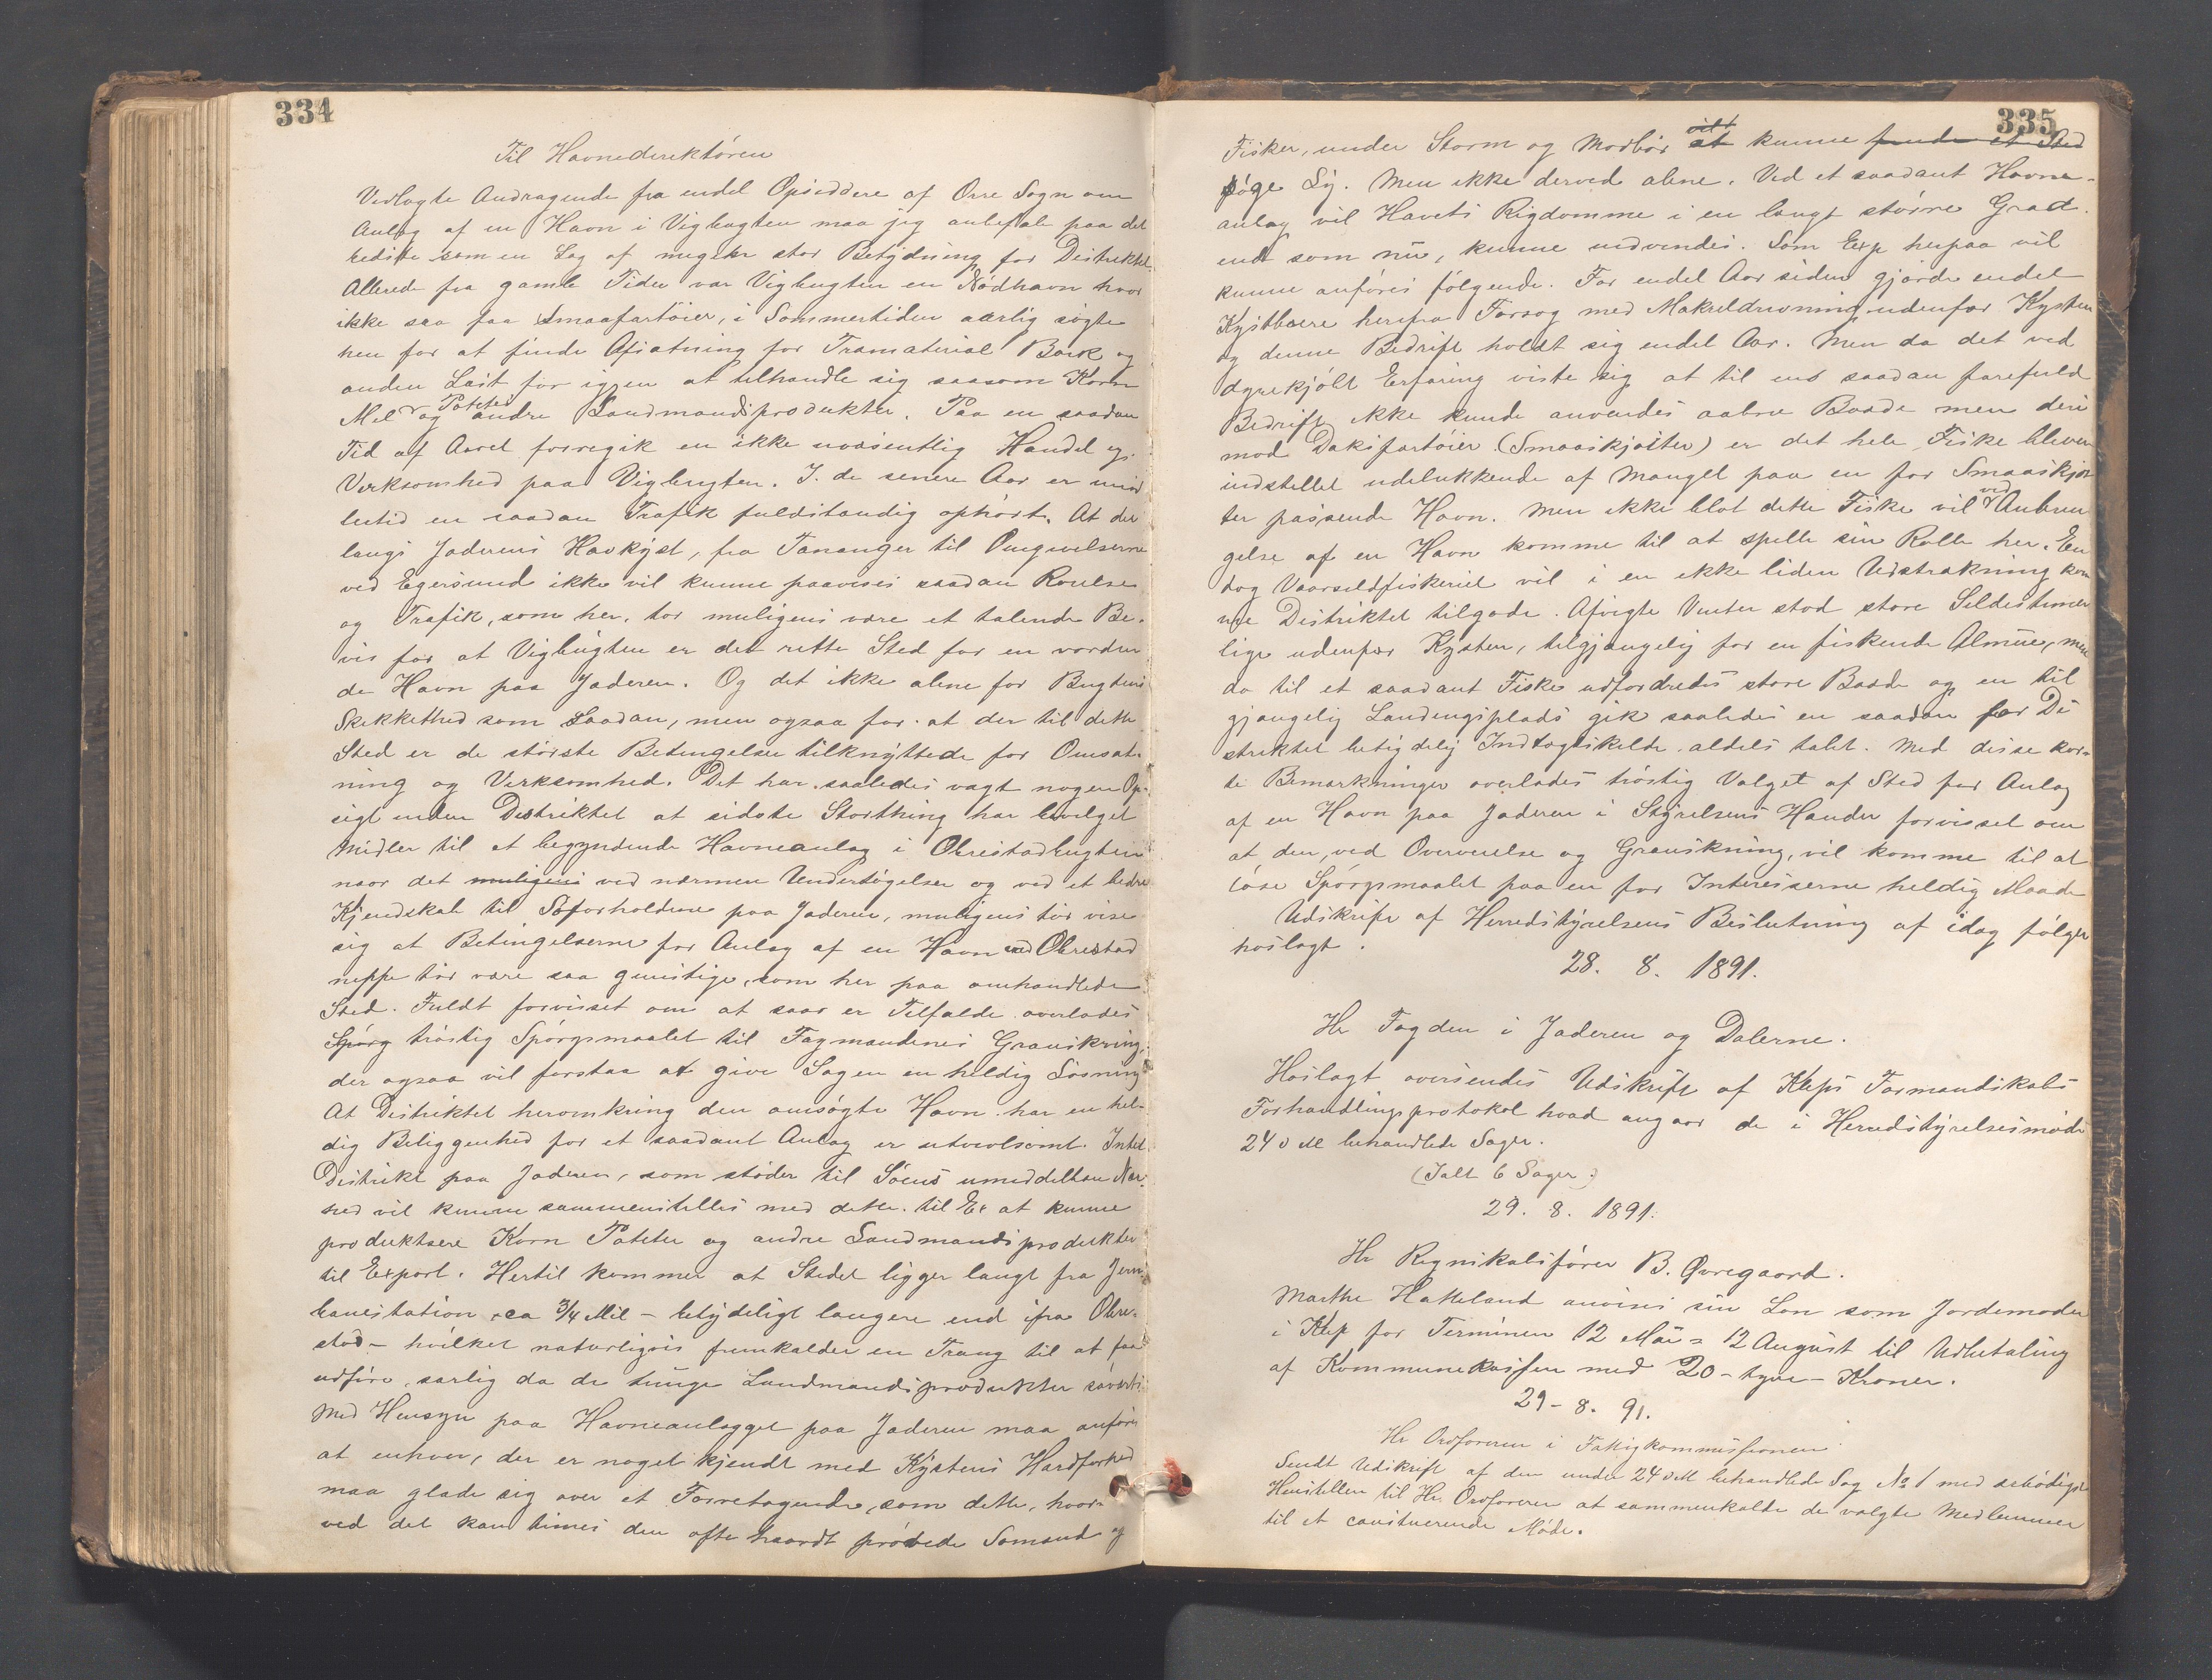 334
Til Havnedirektören
Vedlagte Andragende fra endel Opsiddere af Orre Sogn om
Anlæg af en Havn i Vigbugten maa jeg anbefale paa det
bedste som en Sag af meget stor Betydning for Distriktet
Allerede fra gamle Tider var Vigbugten en Nödhavn hvor
ikke saa faa Smaafartöier, i Sommertiden aarlig sögte
hen for at finde Afsætning for Træmaterial Bark og
anden Last for igjen at tilhandle sig saasom Korn
Mel Poteter og andre Landmandsprodukter. Paa en saadan
Tid af Aaret foregik en ikke uvæsentlig Handel og
Virksomhed paa Vigbugten. I de senere Aar er imid
lertid en saadan Trafik fuldstændig ophört. At der
langs Jæderens Havkyst, fra Tananger til Omgivelserne
ved Egersund ikke vil kunne paavises saadan Rörelse
og Trafik, som her, tör muligens være et talende Be-
vis for at Vigbugten er det rette Sted for en vorden
de Havn paa Jæderen. Og det ikke alene for Bugtens
Skikkethed som saadan, men ogsaa for at der til dette
Sted er de störste Betingelser tilknyttede for Omsæt-
ning og Virksomhed. Det har saaledes vagt nogen Op-
sigt inden Distriktet at sidste Storthing har bevilget
Midler til et begyndende Havneanlæg i Obrestadbugten
naar det muligens ved nærmere Undersögelser og ved et bedre
Kjendskab til Söforholdene paa Jæderen, muligens tör vise
sig at Betingelserne for Anlæg af en Havn ved Obrestad
neppe tör være saa gunstige, som her paa omhandlede
Sted. Fuldt forvisset om at saa er Tilfælde overlades
Spörg tröstig Spörgsmaalet til Fagmændenes Granskning,
der ogsaa vil forstaa at give Sagen en heldig Lösning
At Distriktet heromkring den omsögte Havn har en hel-
dig Beliggenhed for et saadant Anlæg er utvivlsomt. Intet
Distrikt paa Jæderen, som stöder til Söens umiddelbare Nær-
hed vil kunne sammenstilles med dette. til Ex at kunne
produktsere Korn Poteter og andre Landmandsprodukter
til Export. Hertil kommer at Stedet ligger langt fra Jern-
banestation, ca 3/4 Mil – betydeligt længere end ifra Obre-
stad – hvilket naturligvis fremkalder en Trang til at faa
udföre, særlig da de tunge Landmandsprodukter
Med Hensyn paa Havneanlægget paa Jæderen maa anföres
at enhver, der er noget kjendt med Kystens Hardförhed
maa glæde sig over et Forretagende, som dette, hvor-
ved det kan times den ofte haardt prövede Sömand og
335
Fisker, under Storm og Modbör at vilt kunne finde et Sted
söge Ly. Men ikke derved alene. Ved et saadant Havne-
anlæg vil Havets Rigdomme i en langt större Grad.
end som nu, kunne udvindes. Som Exp herpaa vil
kunne anföres fölgende. For endel Aar siden gjorde endel
Kystboere herfra Forsog med Makreldrivning udenfor Kysten
og denne Bedrift holdt sig endel Aar. Men da det ved
dyrekjöbt Erfaring viste sig at til en saadan farefuld
Bedrift ikke kunde anvendes aabne Baade men deri
mod Dæksfartöier (Smaaskjöiter) er det hele Fiske bleven
indstillet udelukkende af Mangel paa en for Smaaskjöi
ter passende Havn. Men ikke blot dette Fiske vil ved Anbrin
gelse af en Havn komme til at spille sin Rolle her. En
dog Vaarsildfiskeriet vil i en ikke liden Udstrækning kom
me Distriktet tilgode. Afvigte Vinter stod store Sildestimer
lige udenfor Kysten, tilgjængelig for en fiskende Almue, men
da til et saadant Fiske udfordredes store Baade og en til
gjængelig Landingsplads gik saaledes en saadan for Di
striktet betydelig Indtægtskilde aldeles tabt. Med disse kor-
te Bemærkninger overlades tröstig Valget af Sted for Anlæg
af en Havn paa Jæderen i Styrelsens Hænder forvisset om
at den, ved Overveielse og Granskning, vil komme til at
löse Spörgsmaalet paa en for Interesserne heldig Maade
Udskrift af Herredstyrelsens Beslutning af idag fölger
hoslagt.
28. 8. 1891.
Hr Fogden i Jæderen og Dalerne.
Hoslagt oversendes Udskrift af Kleps Formandskabs
Forhandlingsprotokol hvad angaar de i Herredstyrelsesmöde
24 d M behandlede Sager.
(Ialt 6 Sager)
29. 8. 1891.
Hr Regnskabsförer B. Øvregaard.
Marthe Hatteland anvises sin Løn som Jordemoder
i Klep for Terminen 12 Mai = 12 August til Udbetaling
af Kommunekassen med 20 – tyve – Kroner.
29 – 8. 91.
Hr Ordföreren i Fattigkommissionen
Sendt Udskrift af den under 24 d M behandlede Sag No 1 med ærbödigst
Henstillen til Hr. Ordföreren at sammenkalde de valgte Medlemmer
til et constituerende Möde.